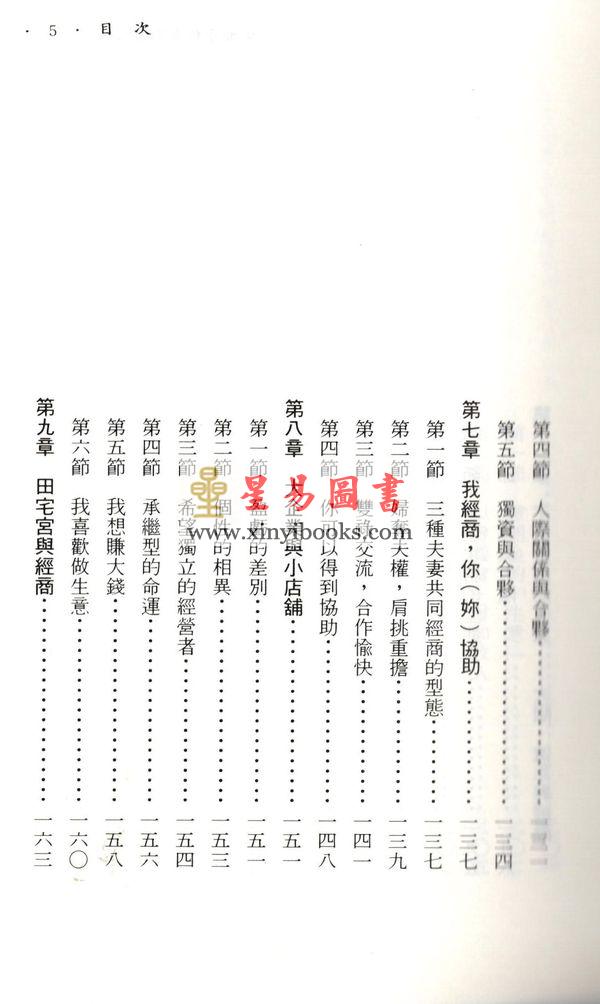 · 5 · 目次
第四節 人際關係與合夥…………一三一
第五節 獨資與合夥…………一三四
第七章 我經商，你（妳）協助…………一三七
第一節 三種夫妻共同經商的型態…………一三七
第二節 婦奪夫權，肩挑重擔…………一三九
第三節 雙祿交流，合作愉快…………一四一
第四節 你可以得到協助…………一四八
第八章 大企業與小店舖…………一五一
第一節 盈虧的差別…………一五一
第二節 個性的相異…………一五三
第三節 希望獨立的經營者…………一五四
第四節 承繼型的命運…………一五六
第五節 我想賺大錢…………一五八
第六節 我喜歡做生意…………一六〇
第九章 田宅宮與經商…………一六三
星易圖書
www.xinyibooks.com